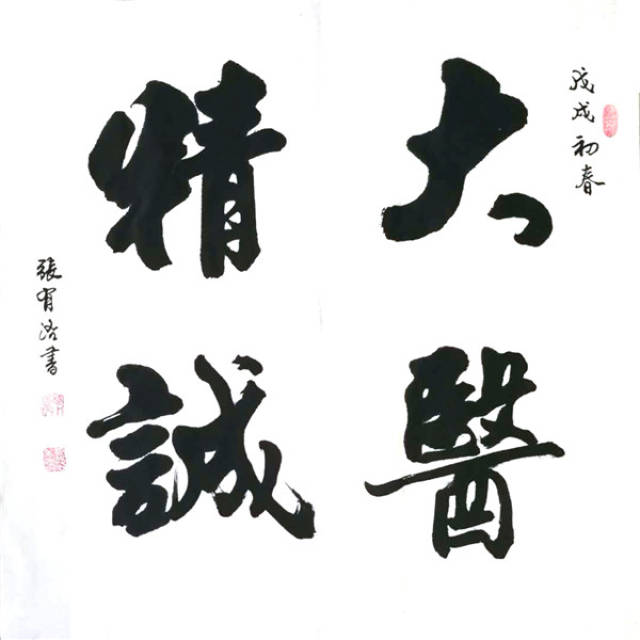 戊戌初春
大醫
精誠
張有洛書